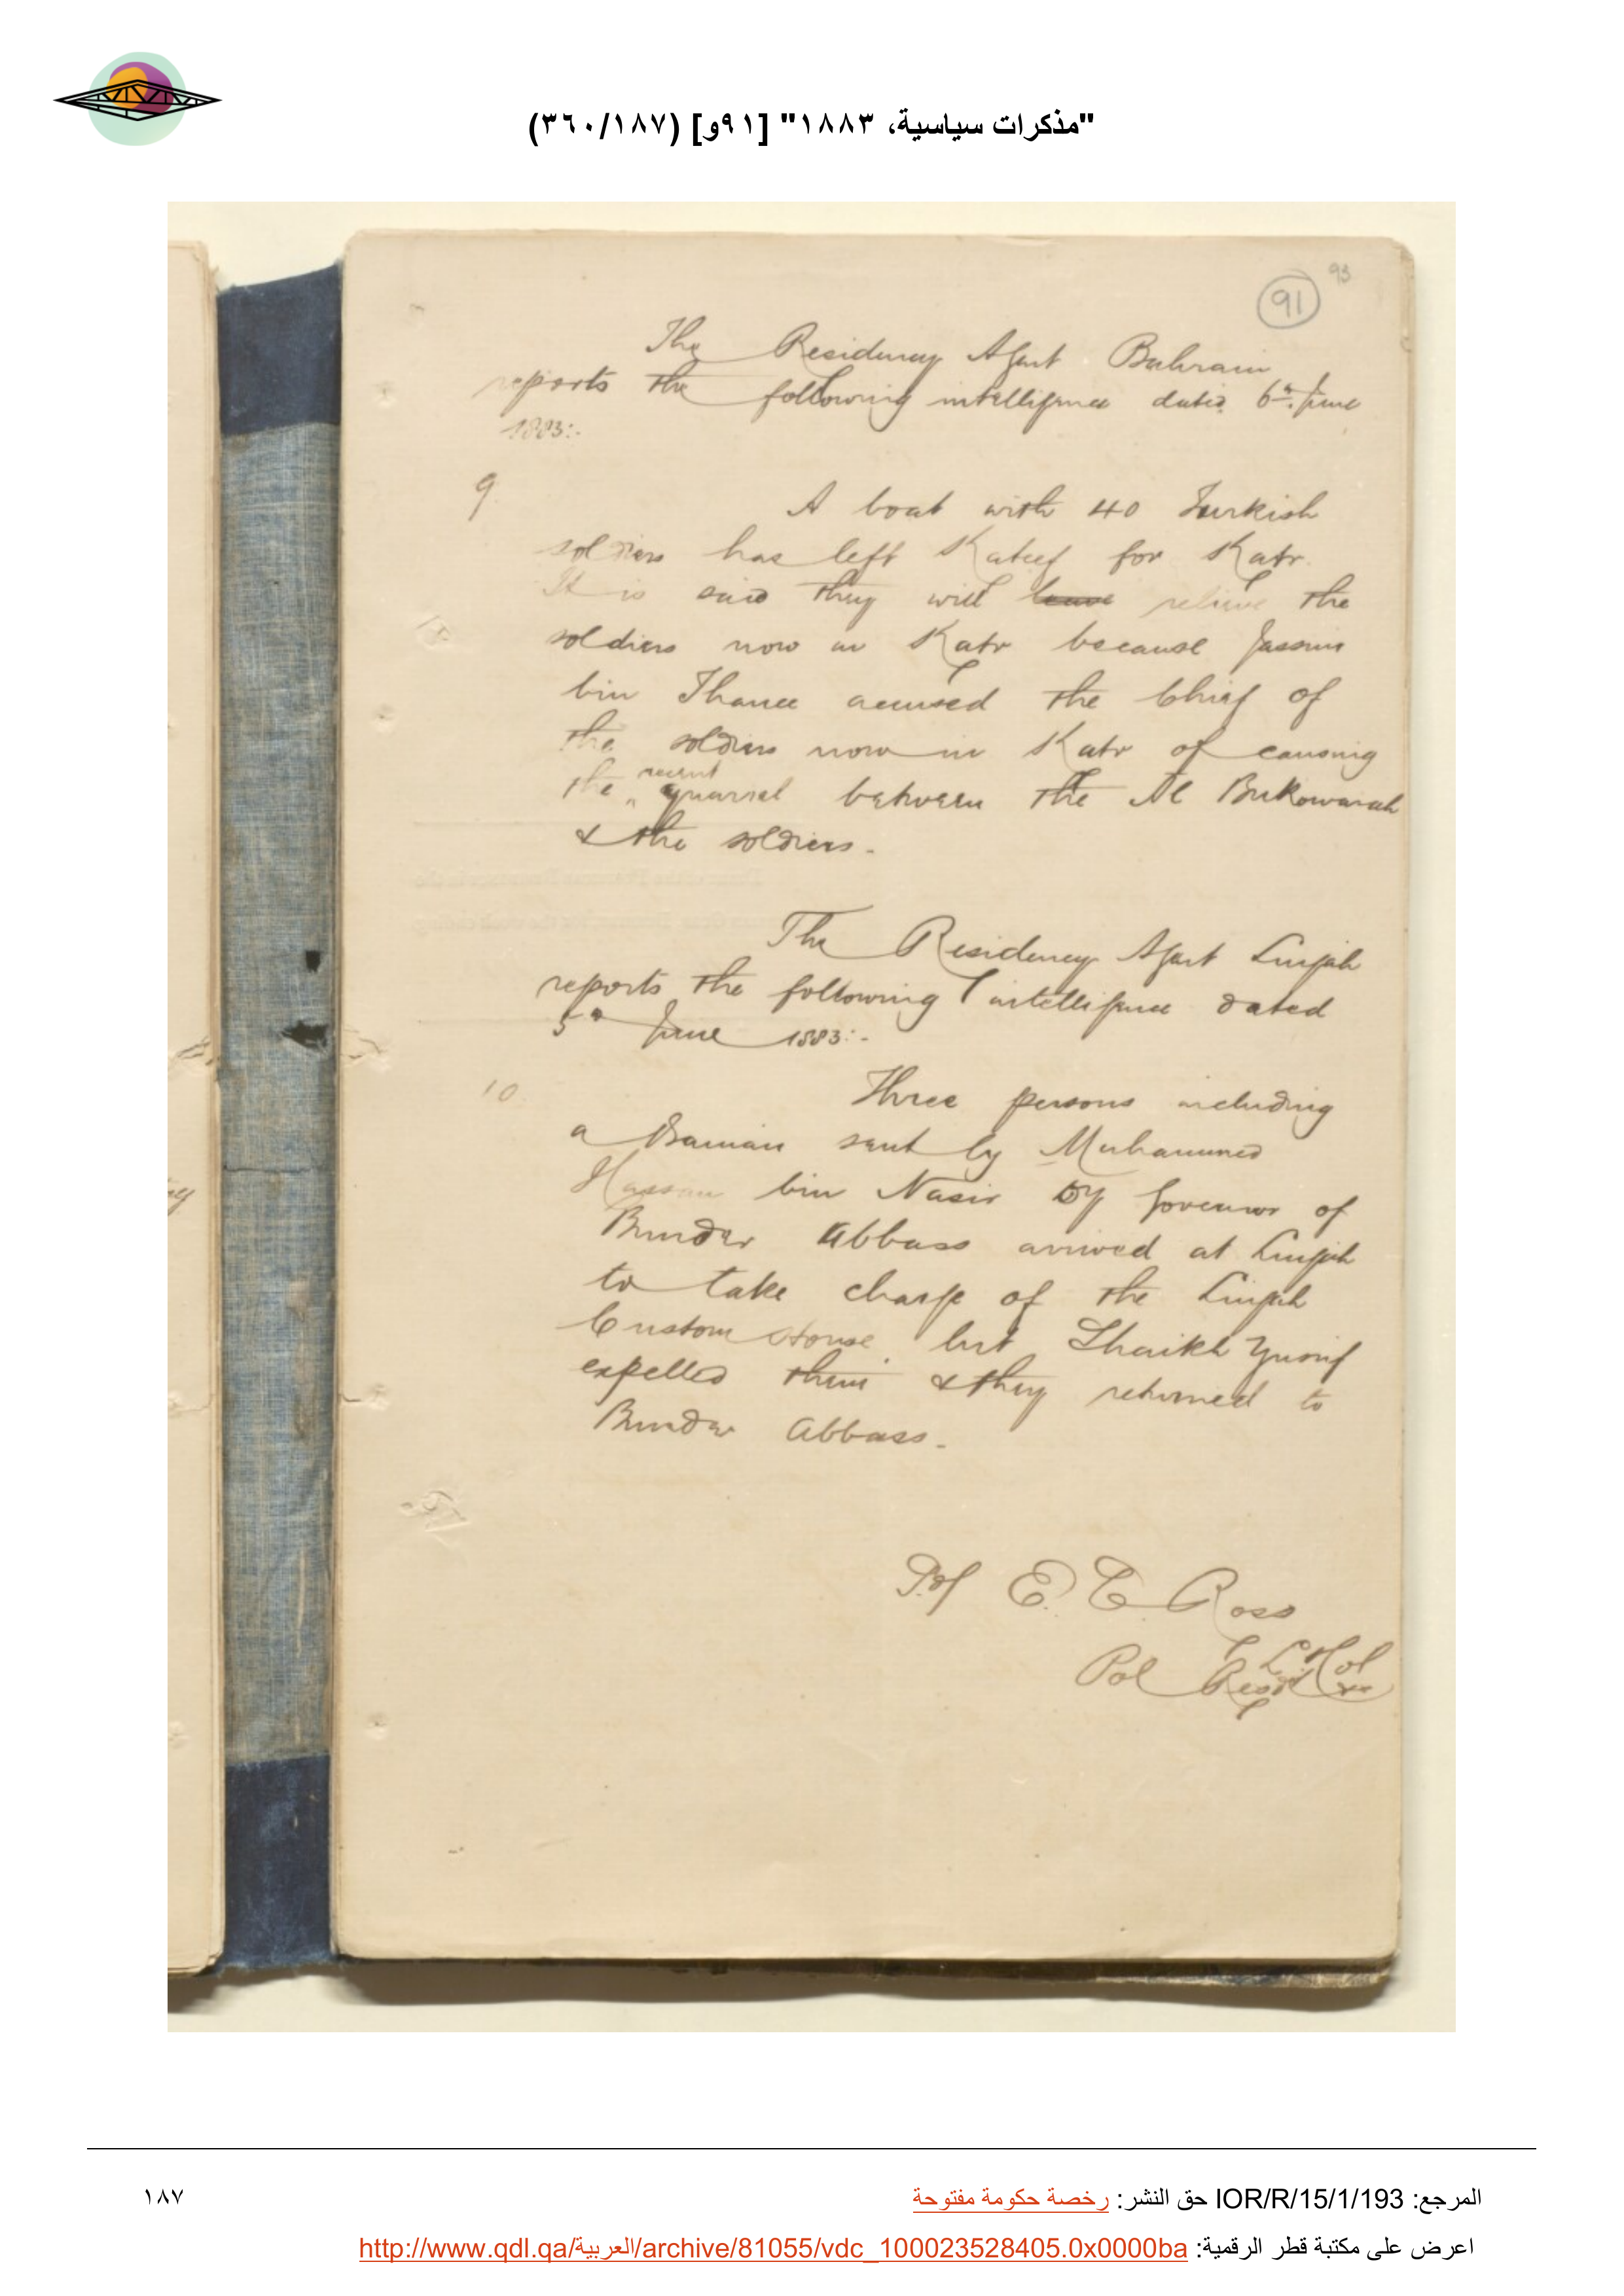 "مذكرات سياسية، ١٨٨٣" [٩١و] (٣٦٠/١٨٧)
93
91
The Residency Agent Bahrain
reports the following intelligence dated 6th June
1883:-
9. A boat with 40 Turkish
soldiers has left Kateef for Katr.
It is said they will leave relieve the
soldiers now in Katr because Jassim
bin Thanee accused the Chief of
the soldiers now in Katr of causing
the recent quarrel between the Al Bukowarah
& the soldiers.-
The Residency Agent Lingah
reports the following intelligence dated
5th June 1883:-
10. Three persons including
a Banian sent by Muhammed
Hassan bin Nasir Dy Governor of
Bunder Abbass arrived at Lingah
to take charge of the Lingah
Custom House but Shaikh Yusuf
expelled them & they returned to
Bunder Abbass.-
E. C. Ross
Lt Col
Pol Resdt
المرجع: IOR/R/15/1/193 حق النشر: رخصة حكومة مفتوحة
١٨٧
اعرض على مكتبة قطر الرقمية: http://www.qdl.qa/العربية/archive/81055/vdc_100023528405.0x0000ba